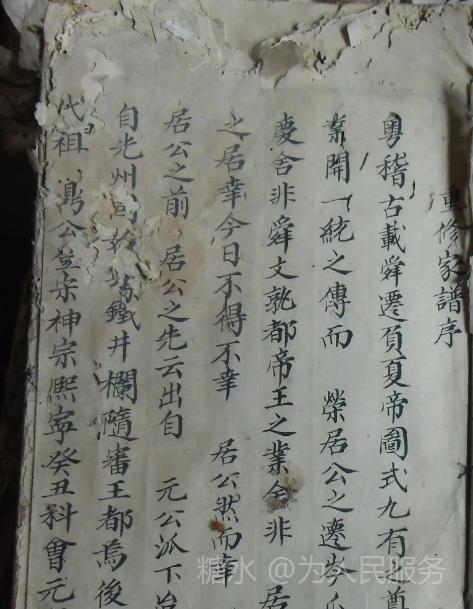 重修家譜序
粵稽古載舜遷負夏帝圖式九有
業開一統之傳而 榮居公之遷岑
慶舍非舜文孰都帝王之業舍非 居
之居幸今日不得不幸 居公然而幸
居公之前 居公之先云出自 元公派下
自光州 鐵井欄隨審王都焉後
代祖 鴻公登宋神宗熙寧癸丑科會元
糖水 @为人民服务